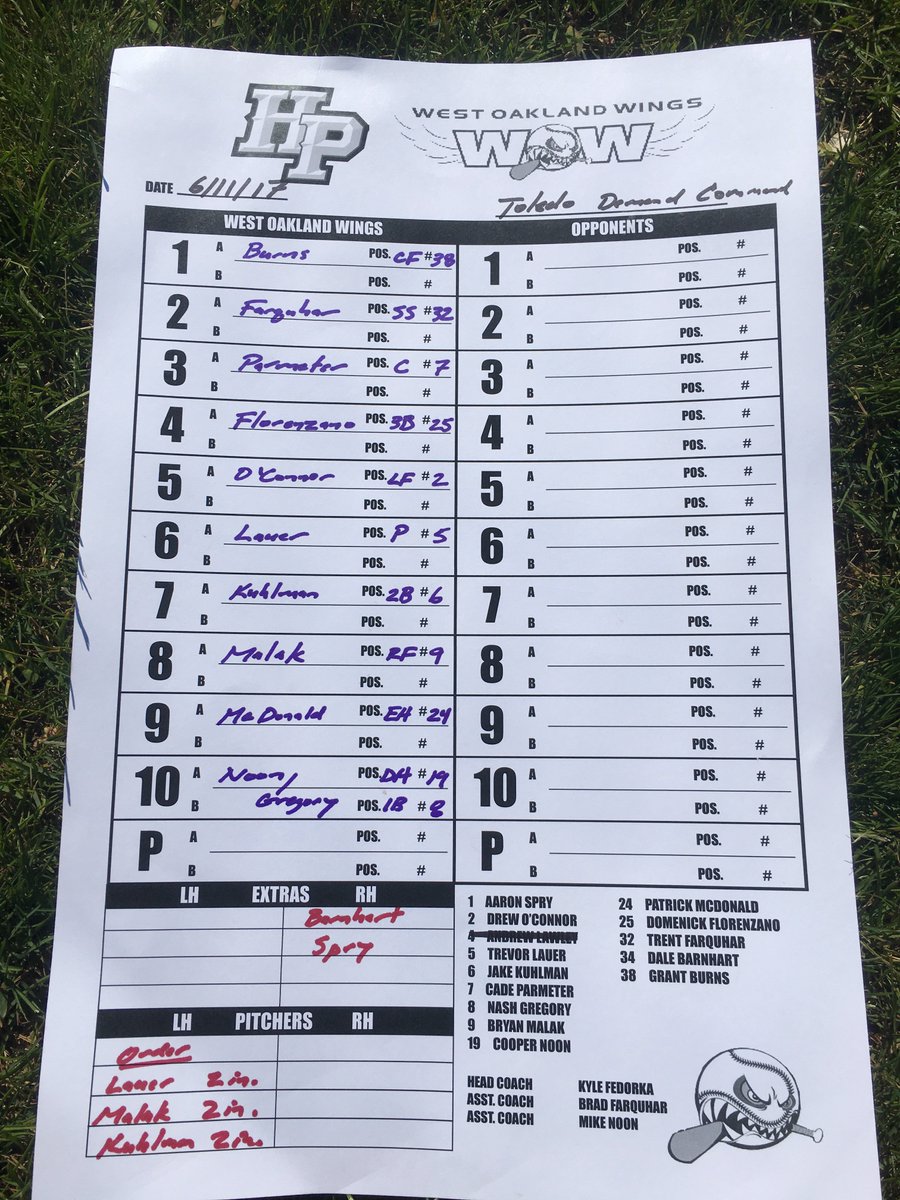 HP
WEST OAKLAND WINGS
WOW
DATE 6/11/17
Toledo Demand Command
WEST OAKLAND WINGS
1 A Burns POS. CF #38
B POS. #
2 A Farquhar POS. SS #32
B POS. #
3 A Parmeter POS. C #7
B POS. #
4 A Florenzano POS. 3B #25
B POS. #
5 A O'Connor POS. LF #2
B POS. #
6 A Lauer POS. P #5
B POS. #
7 A Kuhlman POS. 2B #6
B POS. #
8 A Malak POS. RF #9
B POS. #
9 A McDonald POS. EH #24
B POS. #
10 A Noon/ POS. DH #19
B Gregory POS. 1B #8
P A POS. #
B POS. #
OPPONENTS
1 A POS. #
B POS. #
2 A POS. #
B POS. #
3 A POS. #
B POS. #
4 A POS. #
B POS. #
5 A POS. #
B POS. #
6 A POS. #
B POS. #
7 A POS. #
B POS. #
8 A POS. #
B POS. #
9 A POS. #
B POS. #
10 A POS. #
B POS. #
P A POS. #
B POS. #
LH EXTRAS RH
Barnhart
Spry
LH PITCHERS RH
Order
Lauer 2 in.
Malak 2 in.
Kuhlman 2 in.
1 AARON SPRY
2 DREW O'CONNOR
4 ANDREW LAWLEY
5 TREVOR LAUER
6 JAKE KUHLMAN
7 CADE PARMETER
8 NASH GREGORY
9 BRYAN MALAK
19 COOPER NOON
24 PATRICK MCDONALD
25 DOMENICK FLORENZANO
32 TRENT FARQUHAR
34 DALE BARNHART
38 GRANT BURNS
HEAD COACH KYLE FEDORKA
ASST. COACH BRAD FARQUHAR
ASST. COACH MIKE NOON